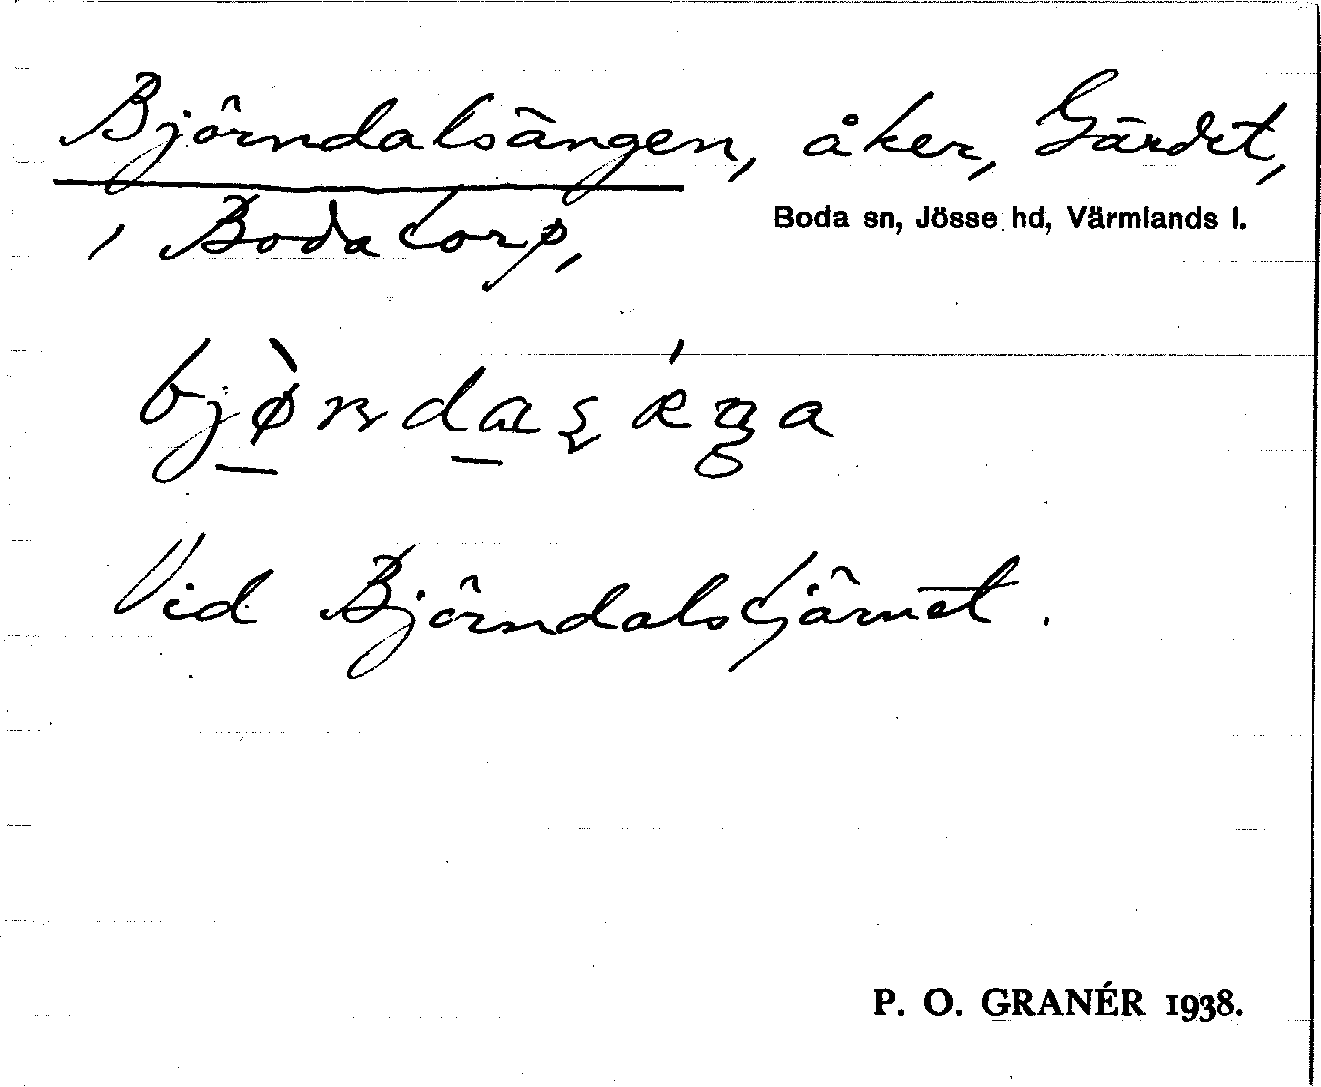 Björndalsängen, åker, Gärdet,
i Bodatorp,
Boda sn, Jösse hd, Värmlands l.
Vid Björndalstjärnet.
P. O. GRANÉR 1938.